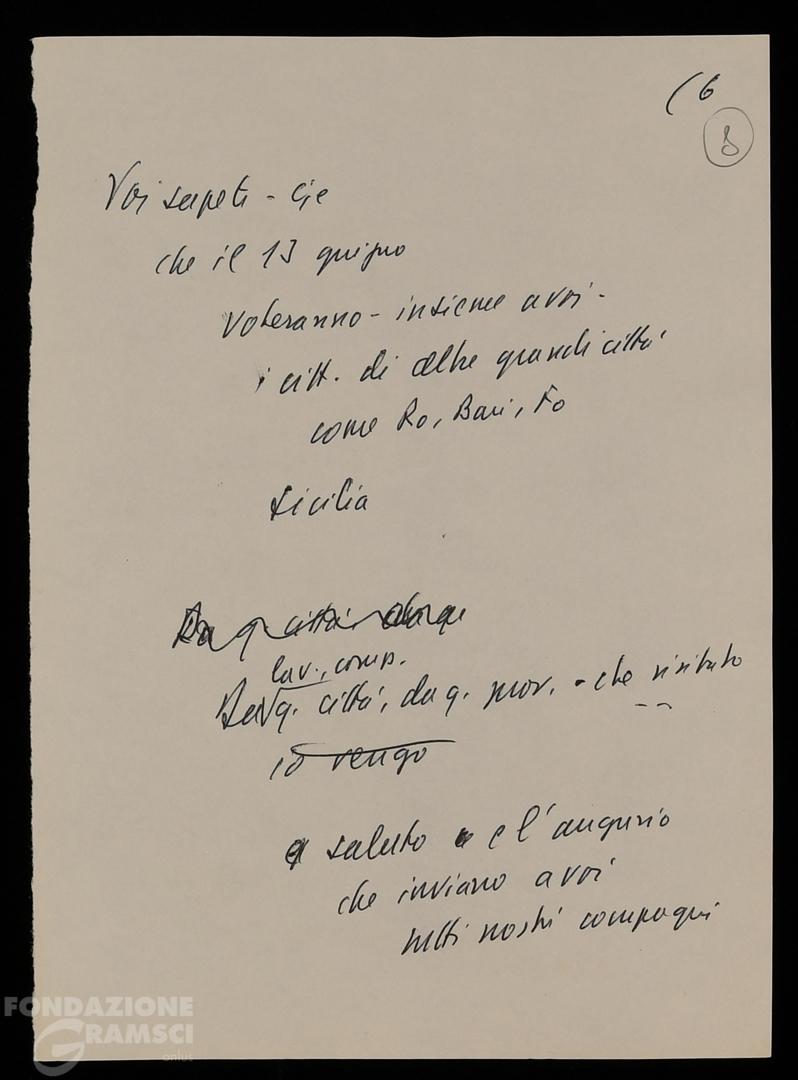 (6
8
Voi sapete - Cie
che il 13 giugno
voteranno - insieme a voi -
i citt. di altre grandi città
come Ro, Bari, Fo
Sicilia
Da q. città
lav., comp.
Da q. città, da q. prov. - che visitato
io vengo
saluto e l'augurio
che inviano a voi
tutti nostri compagni
FONDAZIONE
GRAMSCI
onlus